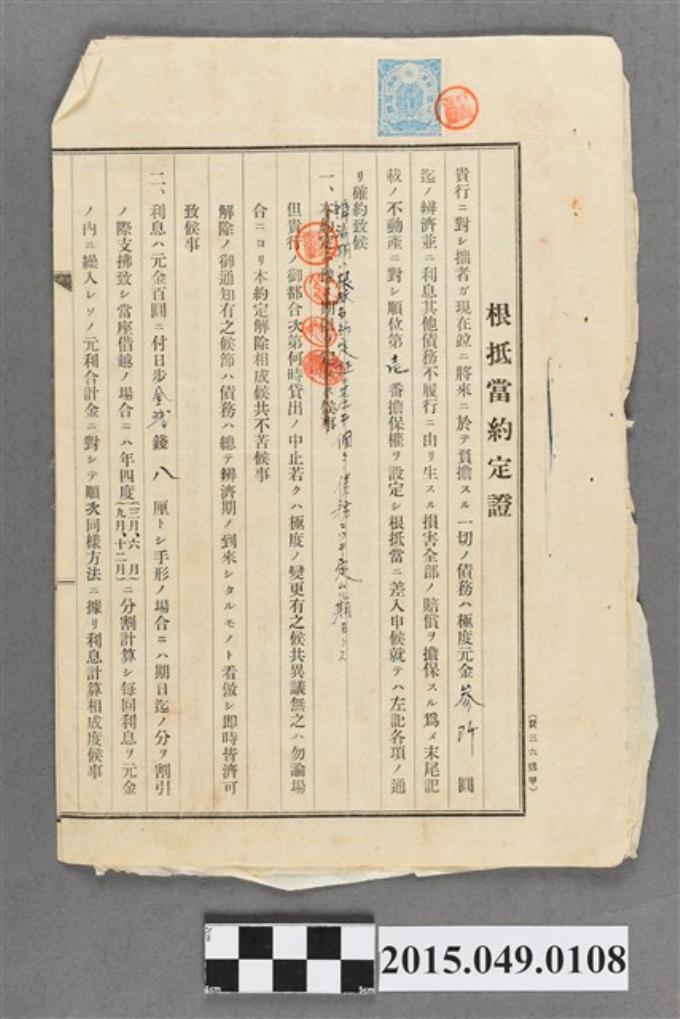 根抵當約定證
貴行ニ對シ拙者ガ現在竝ニ將來ニ於テ負擔スル一切ノ債務ハ極度元金參阡圓
迄ノ辨濟並ニ利息其他債務不履行ニ由リ生スル損害全部ノ賠償ヲ擔保スル爲メ末尾記
載ノ不動產ニ對シ順位第壱番擔保權ヲ設定シ根抵當ニ差入申候就テハ左記各項ノ通
リ確約致候
一、本約定
但貴行ノ御都合次第何時貸出ノ中止若クハ極度ノ變更有之候共異議無之ハ勿論場
合ニヨリ本約定解除相成候共不苦候事
解除ノ御通知有之候節ハ債務ハ總テ辨濟期ノ到來シタルモノト看倣シ即時皆濟可
致候事
二、利息ハ元金百圓ニ付日步金貳錢八厘トシ手形ノ場合ニハ期日迄ノ分ヲ割引
ノ際支拂致シ當座借越ノ場合ニハ年四度(三月、六月九月、十二月)ニ分割計算シ每回利息ヲ元金
ノ內ニ繰入レソノ元利合計金ニ對シテ順次同樣方法ニ據リ利息計算相成度候事
(貸三六號甲)
2015.049.0108